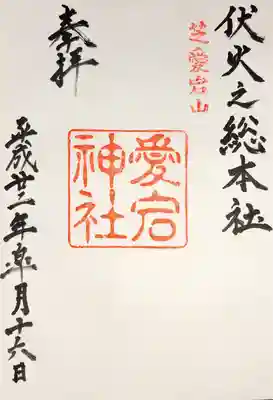 伏火之総本社
芝愛宕山
愛宕神社
奉拝
平成廿二年皐月十六日